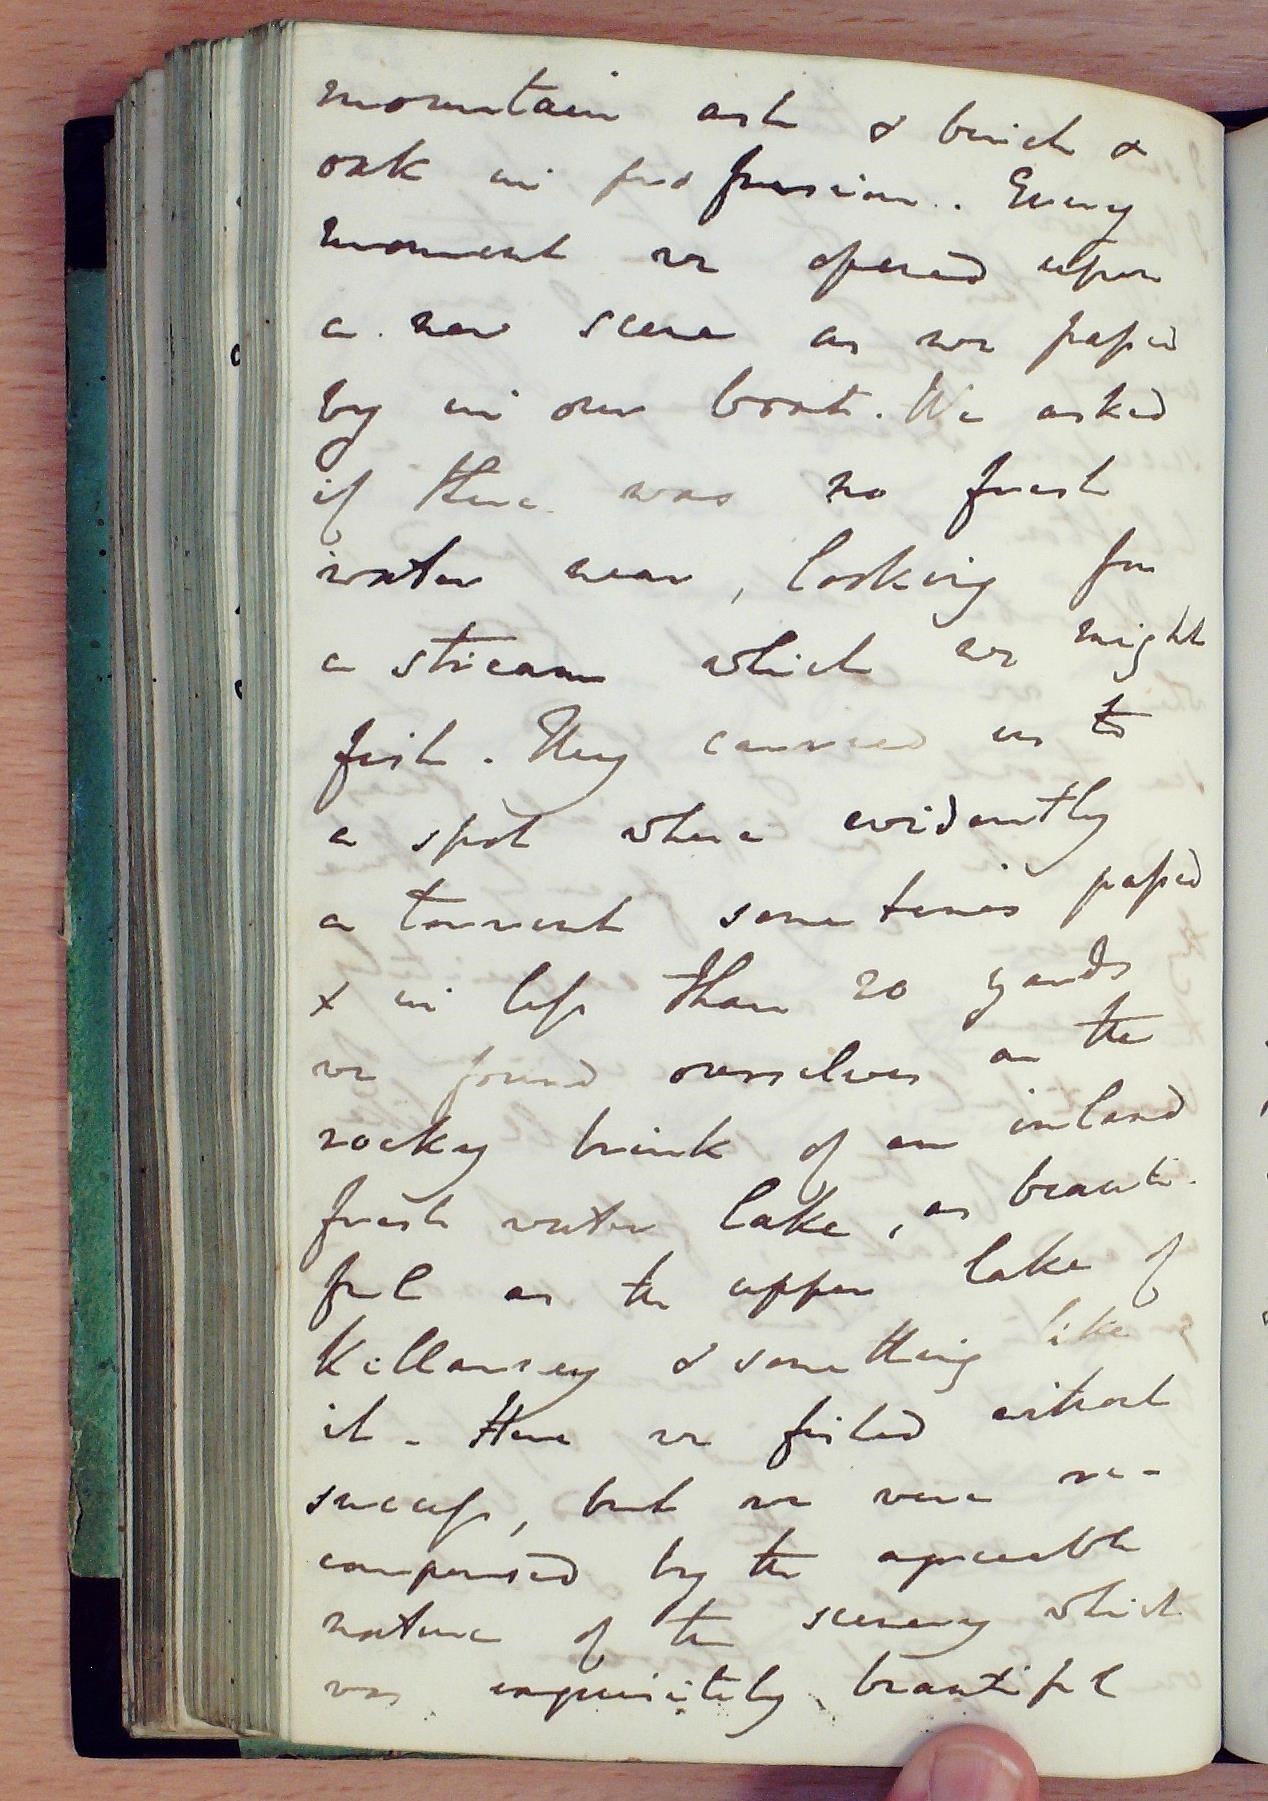 mountain ash & birch &
oak in profusion. Every
moment we opened upon
a new scene as we passed
by in our boat. We asked
if there was no fresh
water near, looking for
a stream which we might
fish. They carried us to
a spot where evidently
a torrent sometimes passed
& in less than 20 yards
we found ourselves on the
rocky brink of an inland
fresh water lake, as beauti-
ful as the upper lake of
Killarney & something like
it - Here we fished without
success, but we were re-
compensed by the agreeable
nature of the scenery which
was exquisitely beautiful